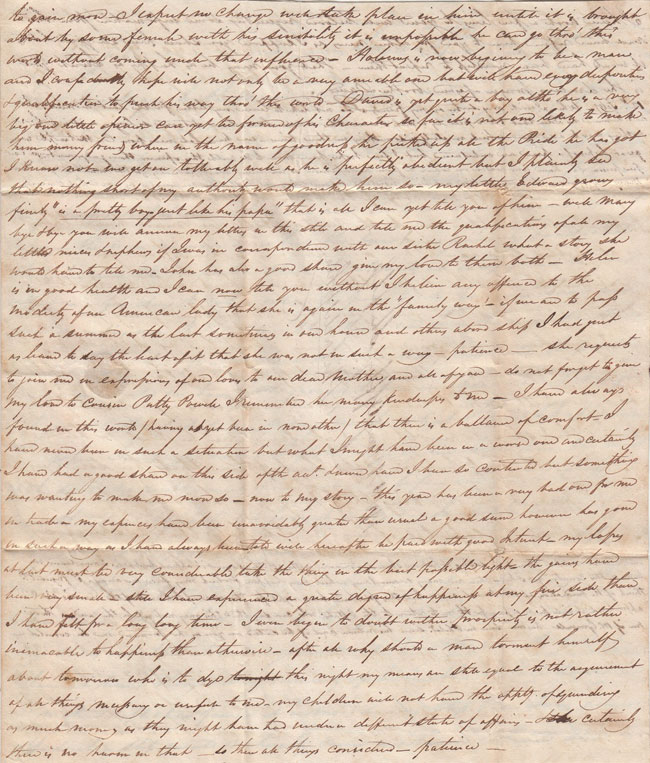 to you now - I expect no change will take place in him until it is brought
about by some female with his sensibility it is impossible he can go thro' this
world without coming under that influence - is now beginning to be a man
and I confidently hope will not only be a very amiable one but will have every disposition
& qualification to push his way thro' this world - David is yet quite a boy altho' he is a very
big one little opinion can yet be formed of his Character so far it is not one likely to make
him many friends where in the name of goodness he picked up all the Pride he has got
I know not - we get on tolerably well as he is perfectly obedient but I plainly see
that nothing short of my authority would make him so - my little Edward grows
finely "is a pretty boy just like his papa" that is all I can yet tell you of him - well Mary
bye & bye you will answer my letter in this stile and tell me the qualifications of all my
little nieces & nephews if I was in correspondence with our sister Rachel what a story she
would have to tell me - John has also a good share give my love to them both -
is in good health and I can now tell you without I believe any offence to the
modesty of an American lady that she is again in the "family way" - if we are to pass
such a summer as the last sometimes in our house and others aboard ship I had just
as leave to say the least of it that she was not in such a way - patience - she requests
to join me in expressions of our love to our dear Mother and all of you - do not forget to give
my love to Cousin Patty I remember her many kindnesses to me - I have always
found in this world (having as yet been in none other) that there is a ballance of comfort I
have never been in such a situation but what I might have been in a worse one and certainly
I have had a good share on this side of the act. never have I been so contented but something
was wanting to make me more so - now to my story - this year has been a very bad one for me
in trade - my expences have been unavoidably greater than usual a good sum however has gone
in such a way as I have always been told will hereafter be paid with good Interest - my losses
at last must be very considerable take the thing in the best possible light - the going hard
been very such a state I have experienced a greater degree of happiness at my fire side than
I have felt for a long long time - I even begin to doubt whether prosperity is not rather
inimicable to happiness than otherwise - after all why should a man torment himself
about tomorrow who is to dye tonight this night my means are still equal to the acquirement
of all things necessary or useful to me - my children will not have the oppty of squandering
as much money as they might have had under a different state of affairs - certainly
there is no harm in that - so then all things considered - patience -